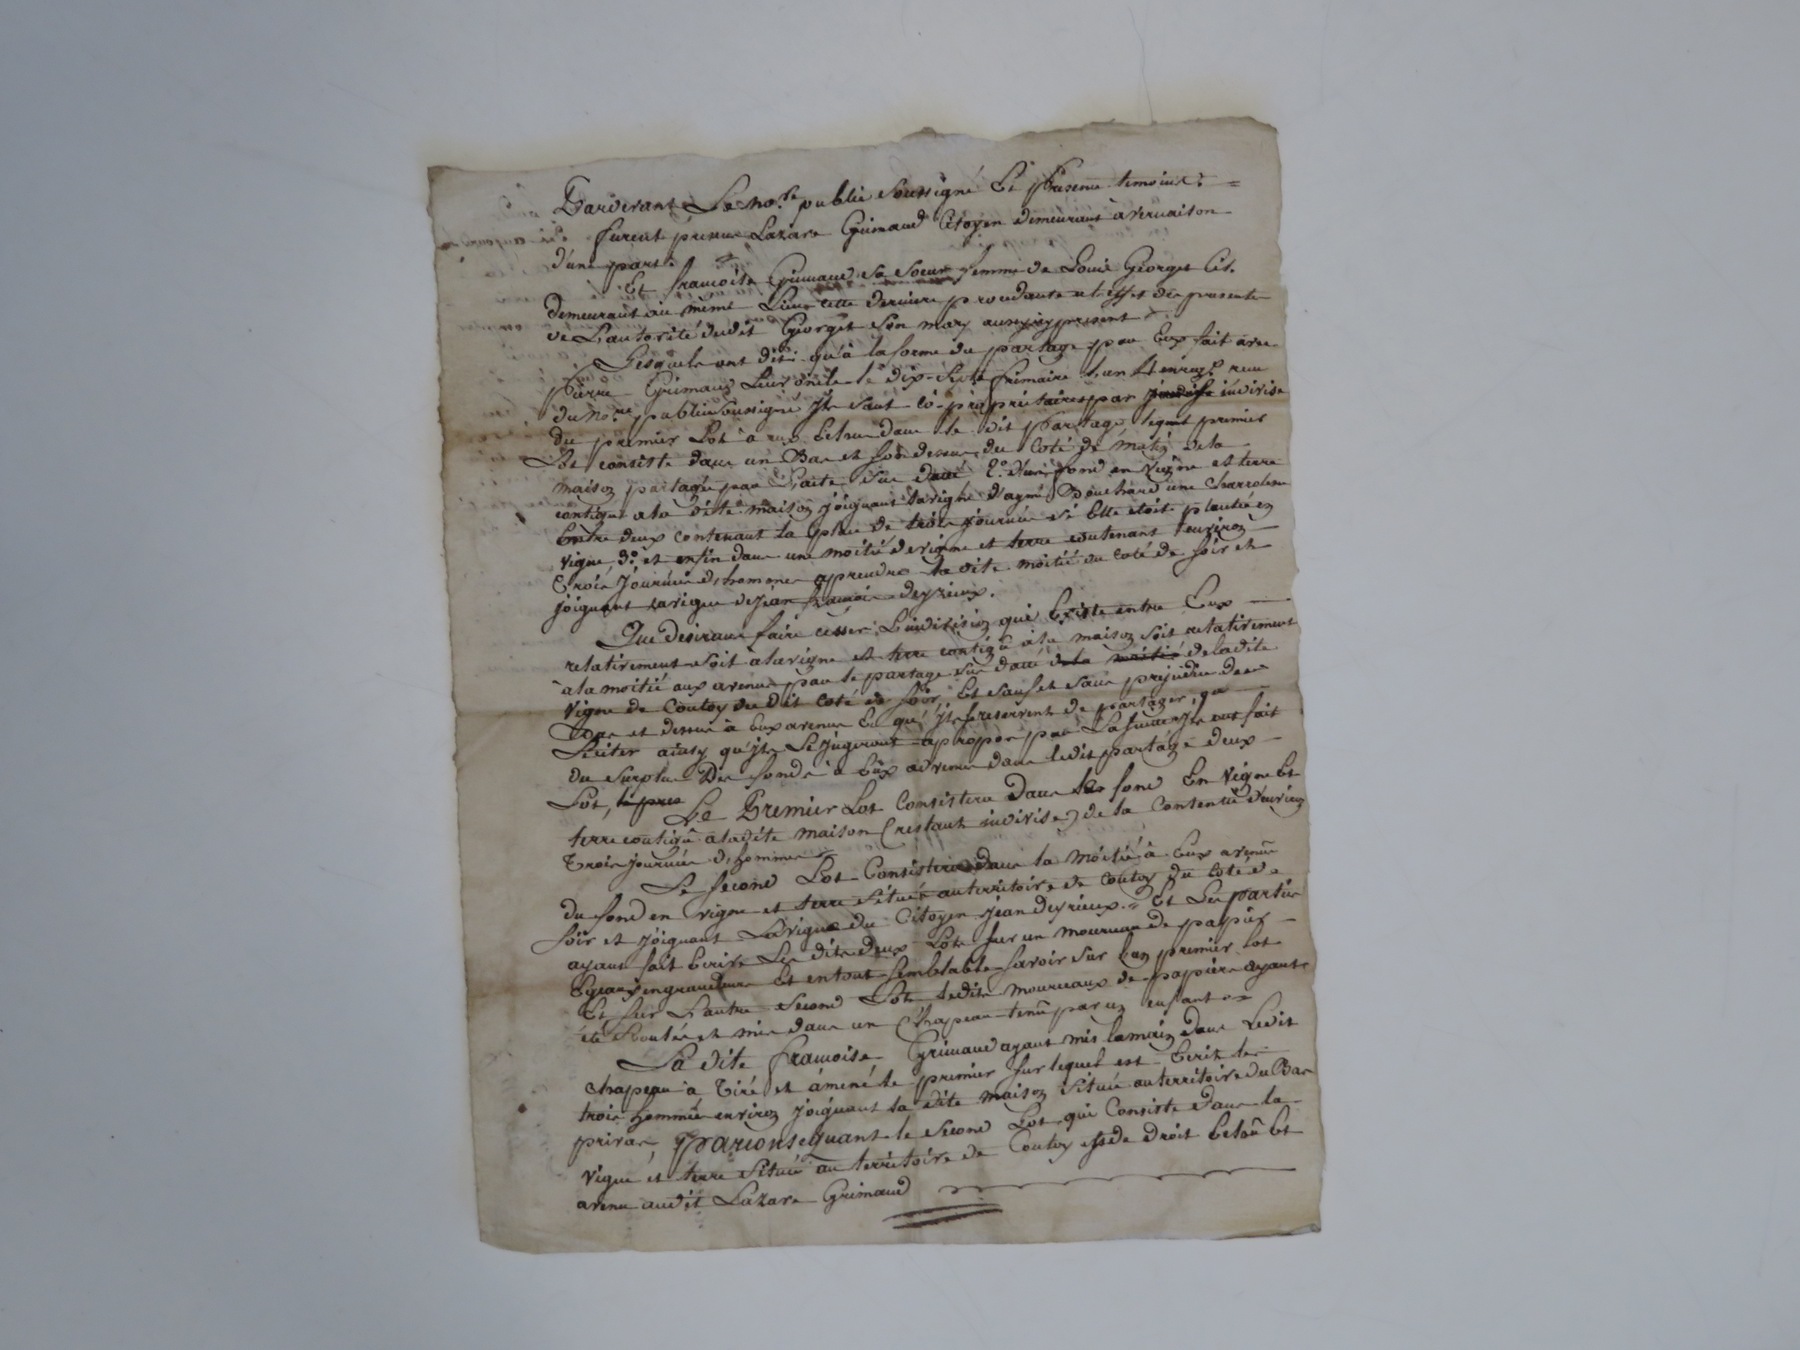 Pardevant Le no.re public soussigné Et presens temoins =
furent presens Lazare Grimaud Citoyen demeurant à vernaison
d'une part.
Et francoise Grimaud sa soeur femme de Louis Georget Cit.
demeurant au même Lieu cette derniere procedante a l'effet des presentes
de L'autorité dudit Georget son mary aussy icy present
Lesquels ont dit qu'à la forme du partage par Eux fait avec
Pierre Grimaud Leur oncle le dix-sept frimaire L'an 4 enreg.é reçu
du No.re public soussigné Jls sont co-propriétaires par indivise
du premier Lot à eux Echu dans le dit Partage lequel premier
Lot consiste dans un Bas et son dessus du Coté de matin de la
maison partagée par L'acte sus daté 2.o d'un fond en vigne et terre
contigu a la dite maison joignant la vigne d'aymé Bouchard une Charroliere
Entre deux contenant la place de trois journées si Elle etoit plantée en
vigne 3.o et enfin dans une moitié de vigne et terre contenant environ
Trois Journées d'hommes a prendre la dite moitié du coté de soir et
joignant la vigne de jean francois deyrieux.
Que desirans faire cesser L'indivision qui Existe entre Eux
relativement soit a la vigne et terre contiguë à la maison soit relativement
a la moitié aux avenus par le partage sus daté de la moitié de la dite
vigne de Coutoy du dit coté de soir Et sauf et sans prejudice des
Bas et dessus à Eux avenus Et qu'Jls se reservent de partager, ou
Liciter ainsy qu'Jls Le jugeront a propos par La suitte Jls ont fait
du surplus Des fonds à Eux advenus dans ledit partage deux
Lots,
Le Premier Lot Consistera Dans le fond En vigne Et
terre contiguë a la dite maison (restant indivise) de la Contenue d'environ
Trois journées d'hommes
Le second Lot Consistera dans la moitié à Eux avenue
du fond en vigne et terre située au territoire de Coutoy du coté de
soir et joignant La vigne du Citoyen jean deyrieux. = Et Les parties
ayant fait Ecrire Les dits deux Lots sur un mourceau de papier
Egaux en grandeur Et en tout semblable savoir sur L'un premier lot
Et sur L'autre second Lot lesdits mourceaux de papiers ayants
été Roulés et mis dans un Chapeau tenu par un enfant =
La dite francoise Grimaud ayant mis la main dans Ledit
chapeau à Tiré et améné le premier sur lequel est Ecrit les
trois hommées environ joignant la dite maison située au territoire du Bas
privas, Parconsequant le second Lot qui Consiste dans la
vigne et terre située au territoire de Coutoy est de droit Echu Et
avenu audit Lazare Grimaud